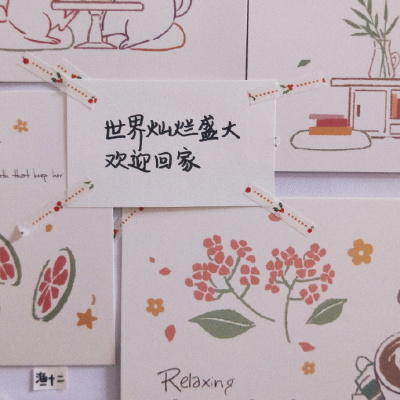 世界灿烂盛大
欢迎回家
that keep her
Relaxing
渔十二